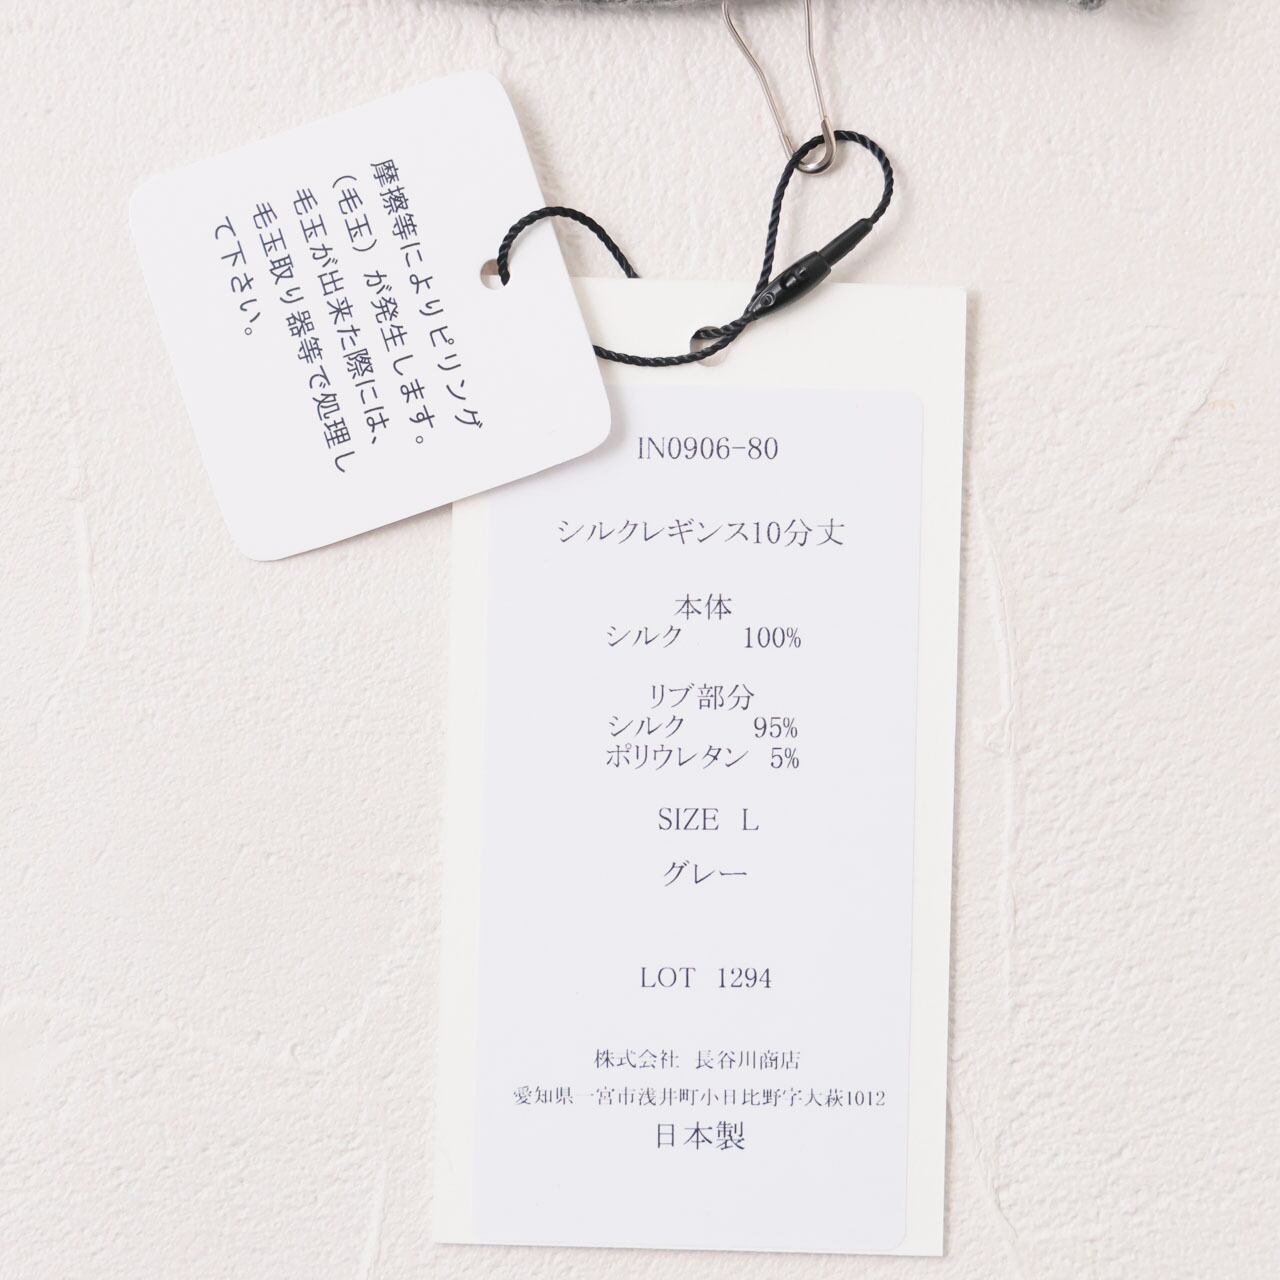 摩擦等によりピリング
（毛玉）が発生します。
毛玉が出来た際には、
毛玉取り器等で処理し
て下さい。
IN0906-80
シルクレギンス10分丈
本体
シルク 100%
リブ部分
シルク 95%
ポリウレタン 5%
SIZE L
グレー
LOT 1294
株式会社 長谷川商店
愛知県一宮市浅井町小日比野字大萩1012
日本製